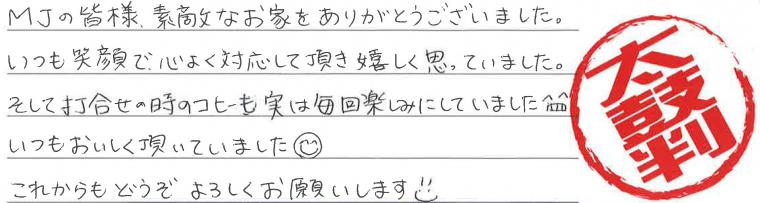 MJの皆様、素敵なお家をありがとうございました。
いつも笑顔で、心よく対応して頂き嬉しく思っていました。
そして打合せの時のコヒーも実は毎回楽しみにしていました
いつもおいしく頂いていました
これからもどうぞよろしくお願いします
太鼓判